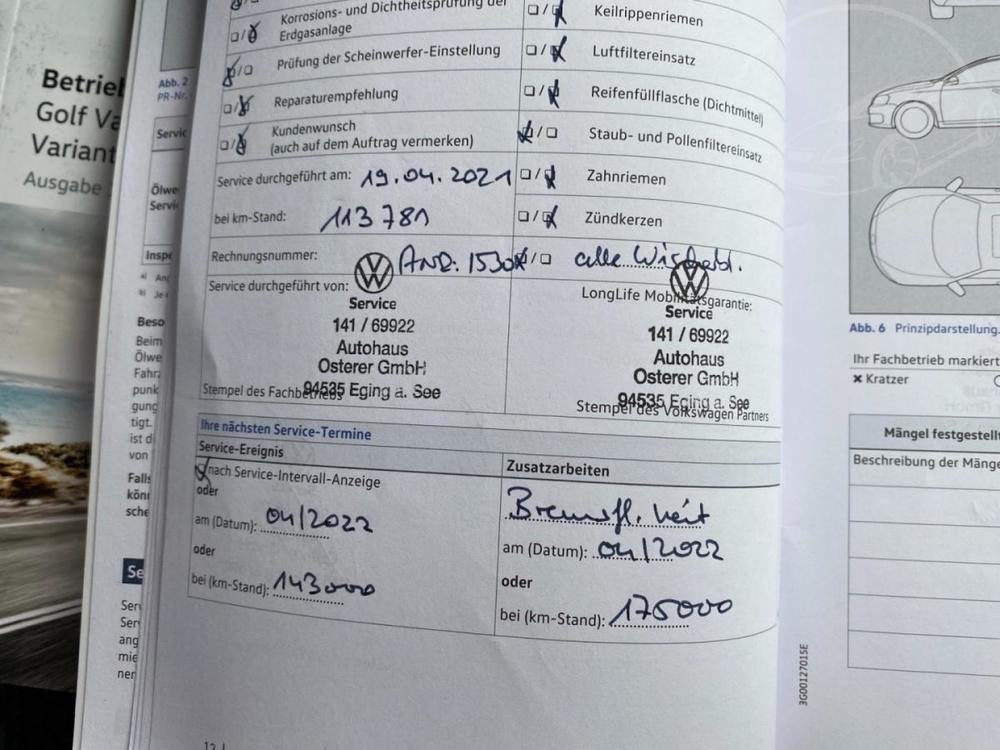 Betrieb
Golf Va
Variant
Ausgabe
Abb. 2
PR-Nr.
Servic
Ölwe
Servi
Inspe
Beso
Beim
Ölwe
Fahrz
punk
gung
tigt.
ist di
von
Falls
könn
sche
Se
Serv
Serv
ang
mie
ner
Korrosions- und Dichtheitsprüfung der
Erdgasanlage
Prüfung der Scheinwerfer-Einstellung
Reparaturempfehlung
Kundenwunsch
(auch auf dem Auftrag vermerken)
Service durchgeführt am: 19.04.2021
bei km-Stand: 113 781
Rechnungsnummer:
Service durchgeführt von:
Service
141 / 69922
Autohaus
Osterer GmbH
94535 Eging a. See
Stempel des Fachbetriebs
Keilrippenriemen
Luftfiltereinsatz
Reifenfüllflasche (Dichtmittel)
Staub- und Pollenfiltereinsatz
Zahnriemen
Zündkerzen
alle
LongLife Mobilitätsgarantie:
Service
141 / 69922
Autohaus
Osterer GmbH
94535 Eging a. See
Stempel des Volkswagen Partners
Ihre nächsten Service-Termine
Service-Ereignis
nach Service-Intervall-Anzeige
oder
am (Datum): 04/2022
oder
bei (km-Stand): 143000
Zusatzarbeiten
am (Datum): 04/2022
oder
bei (km-Stand): 175000
Abb. 6 Prinzipdarstellung.
Ihr Fachbetrieb markiert
× Kratzer
Mängel festgestellt
Beschreibung der Mänge
3G0012701SE